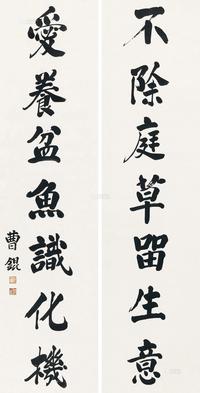 不除庭草留生意
愛養盆魚識化機
曹錕